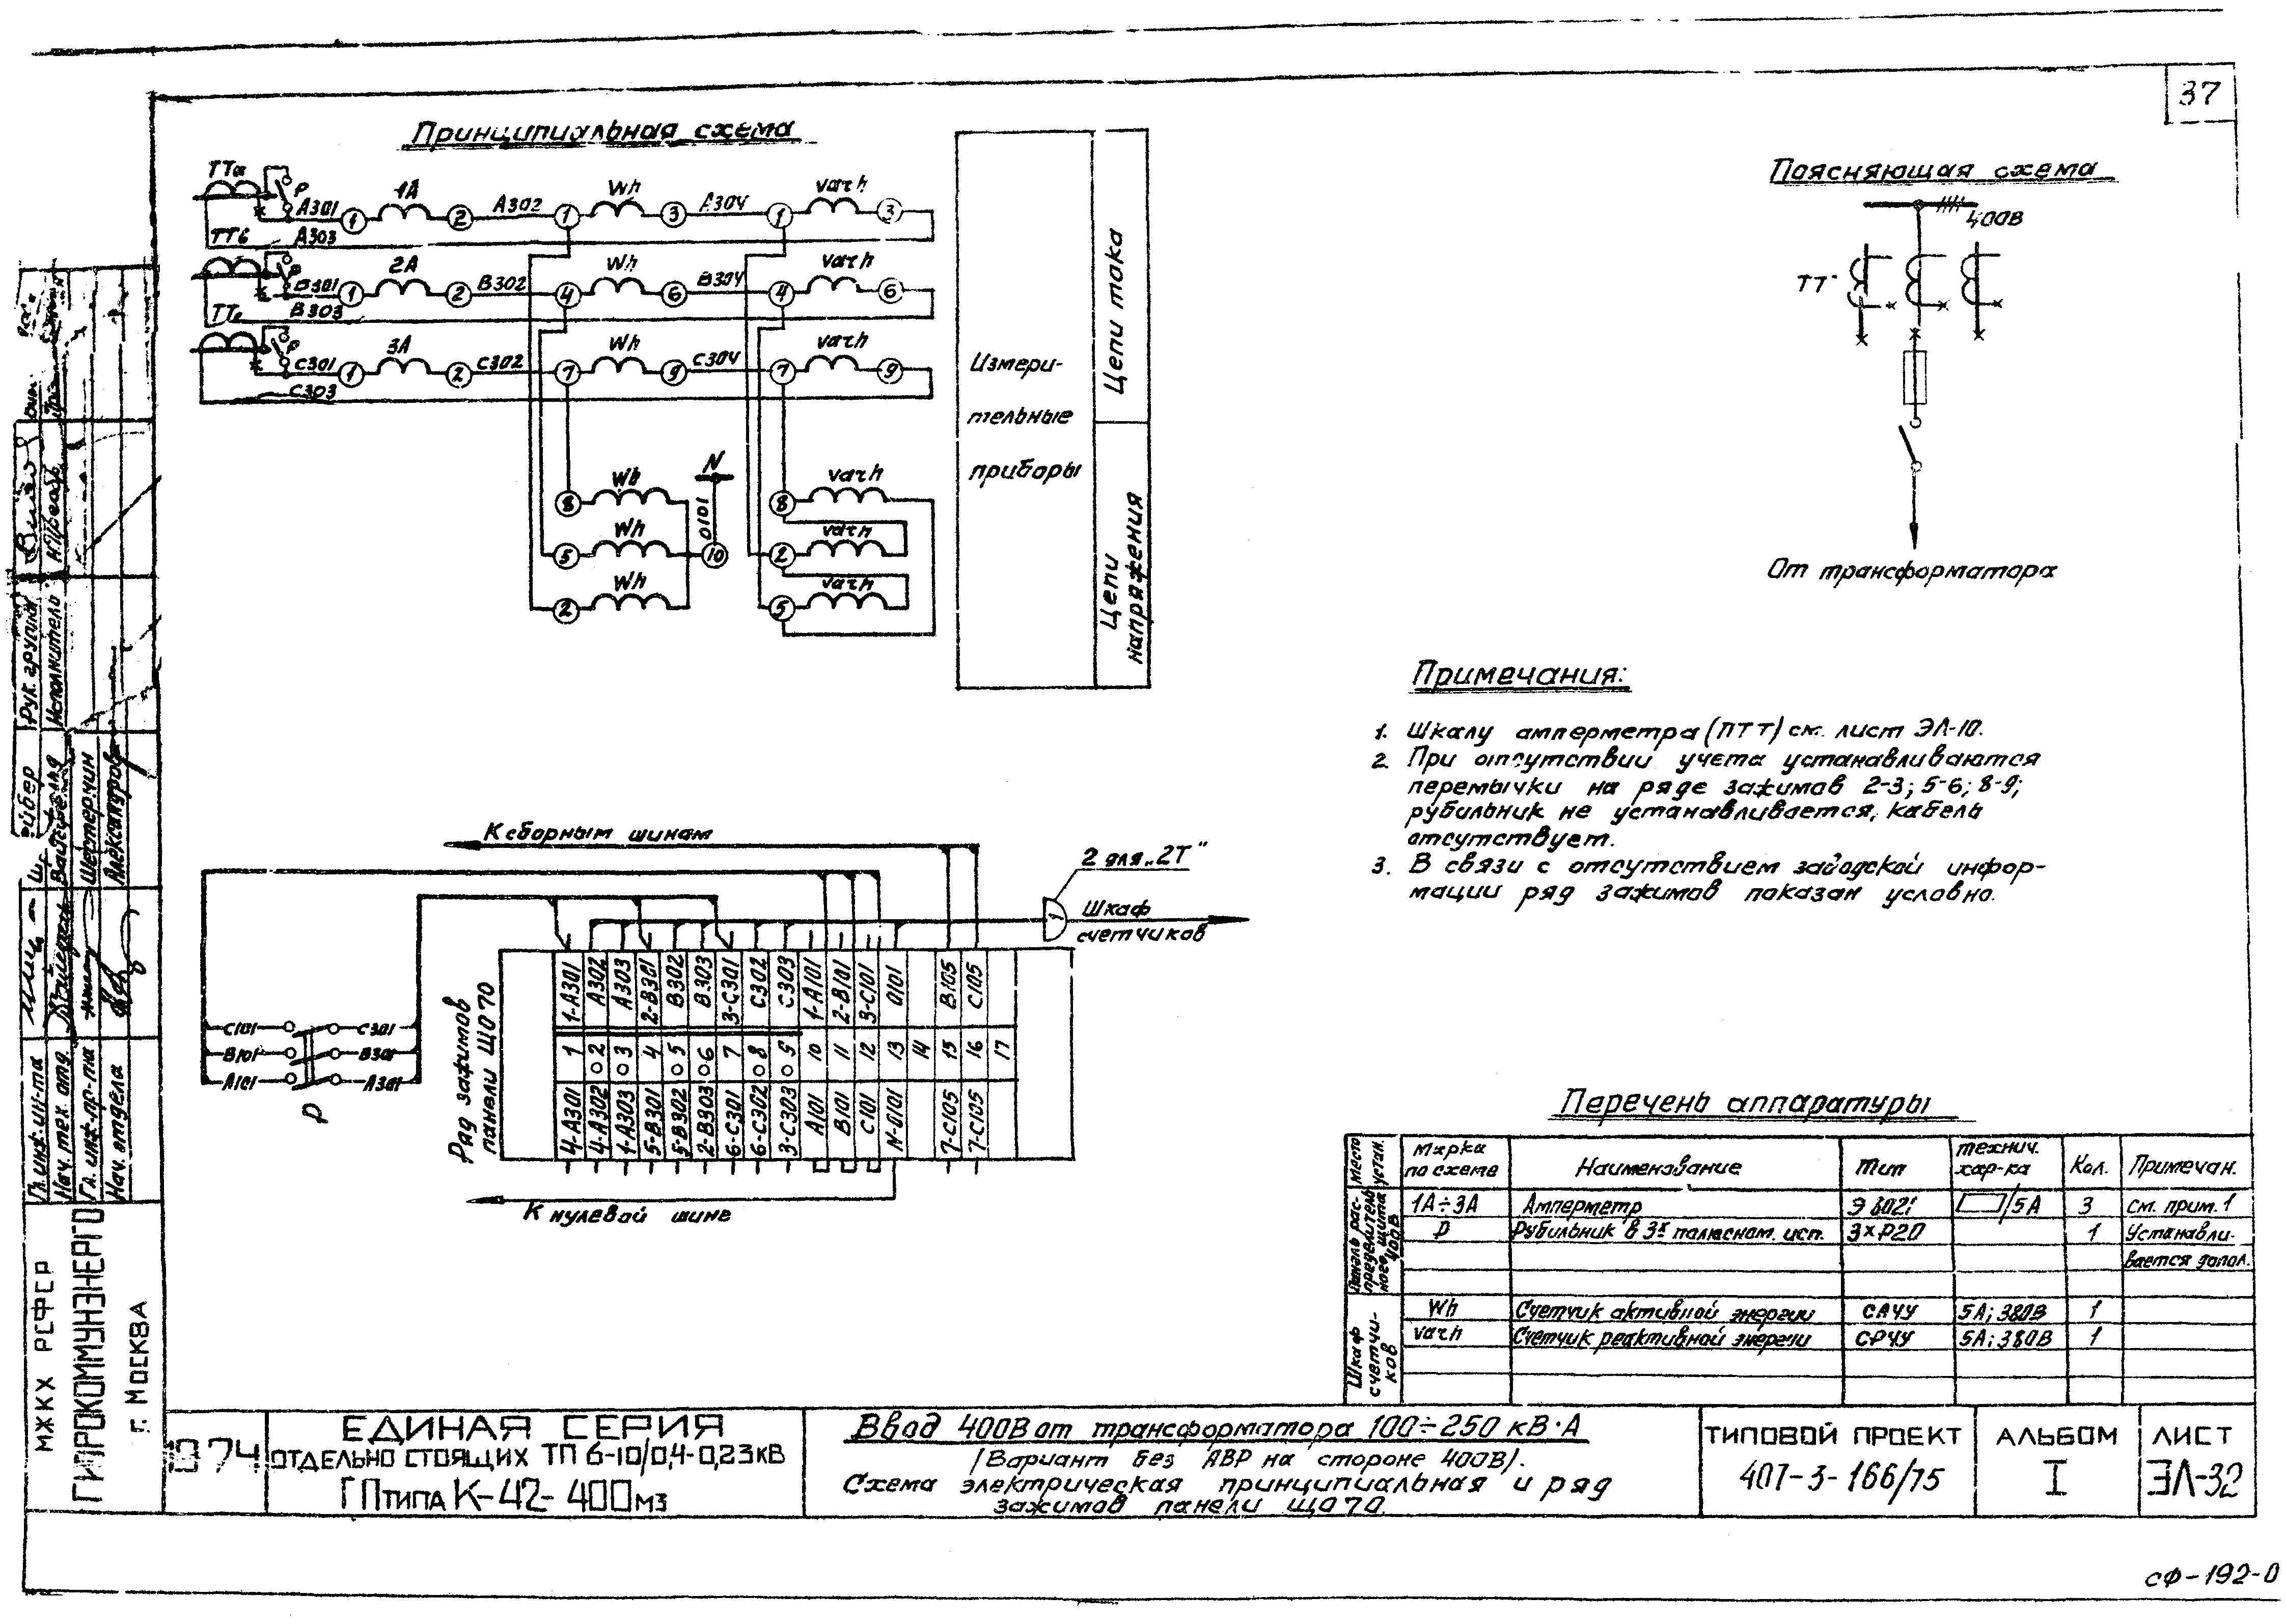 37
Принципиальная схема
ТТа
Р
А301
1
1А
2
А302
1
Wh
3
А304
1
varh
3
ТТб
А303
Р
В301
1
2А
2
В302
4
Wh
6
В304
4
varh
6
В303
Р
С301
1
3А
2
С302
7
Wh
9
С304
7
varh
9
С303
8
Wh
N
0101
10
5
Wh
2
Wh
8
varh
2
varh
5
varh
Измери-
тельные
приборы
Цепи тока
Цепи
напряжения
Поясняющая схема
400В
ТТ
От трансформатора
Примечания:
1. Шкалу амперметра (ПТТ) см. лист ЭЛ-10.
2. При отсутствии учета устанавливаются
перемычки на ряде зажимов 2-3; 5-6; 8-9;
рубильник не устанавливается, кабель
отсутствует.
3. В связи с отсутствием заводской инфор-
мации ряд зажимов показан условно.
К сборным шинам
2 для „2Т"
1
Шкаф
счетчиков
С101 С301
В101 В301
А101 А301
Р
Ряд зажимов
панели ЩО70
1-А301 А302 А303 2-В301 В302 В303 3-С301 С302 С303 1-А101 2-В101 3-С101 0101 В105 С105
1 2 3 4 5 6 7 8 9 10 11 12 13 14 15 16 17
4-А301 4-А302 1-А303 5-В301 5-В302 2-В303 6-С301 6-С302 3-С303 А101 В101 С101 N-0101 7-С105 7-С105
К нулевой шине
Перечень аппаратуры
Место устан. Марка по схеме Наименование Тип технич. хар-ка Кол. Примечан.
Панель распределительного щита 400В
1А÷3А Амперметр Э 8021 /5А 3 См. прим. 1
Р Рубильник в 3х полюсном. исп. 3×Р20 1 Устанавли-
вается допол.
Шкаф счетчи-
ков
Wh Счетчик активной энергии СА4У 5А; 380В 1
varh Счетчик реактивной энергии СР4У 5А; 380В 1
Рук. группы
Исполнитель
Шестерчин
Александров
Гл. инж. ин-та
Нач. тех. отд.
Гл. инж. пр-та
Нач. отдела
МЖКХ РСФСР
ГИПРОКОММУНЭНЕРГО
г. Москва
1974
ЕДИНАЯ СЕРИЯ
ОТДЕЛЬНО СТОЯЩИХ ТП 6-10/0,4-0,23кВ
ГПтипа К-42-400мз
Ввод 400В от трансформатора 100÷250 кВ·А
(Вариант без АВР на стороне 400В).
Схема электрическая принципиальная и ряд
зажимов панели ЩО70.
ТИПОВОЙ ПРОЕКТ
407-3-166/75
АЛЬБОМ
I
ЛИСТ
ЭЛ-32
СФ-192-0